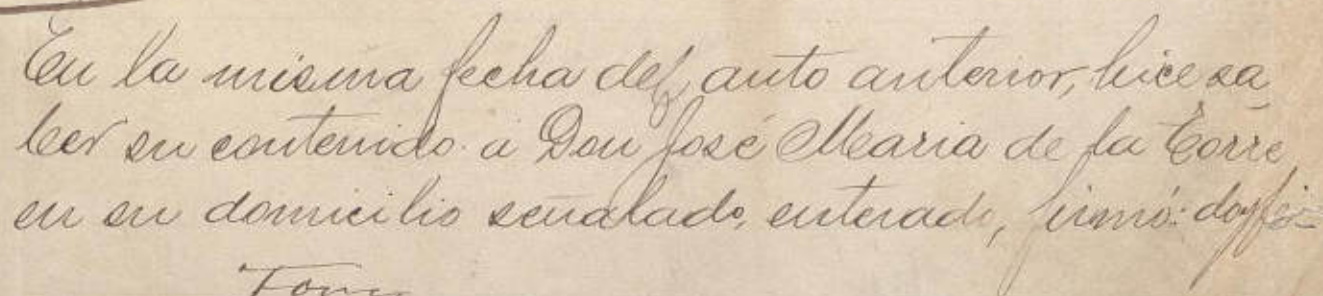 En la misma fecha del auto anterior, hice sa
ber su contenido a Don José Maria de la Torre,
en su domicilio señalado, enterado, firmó: doy fé-